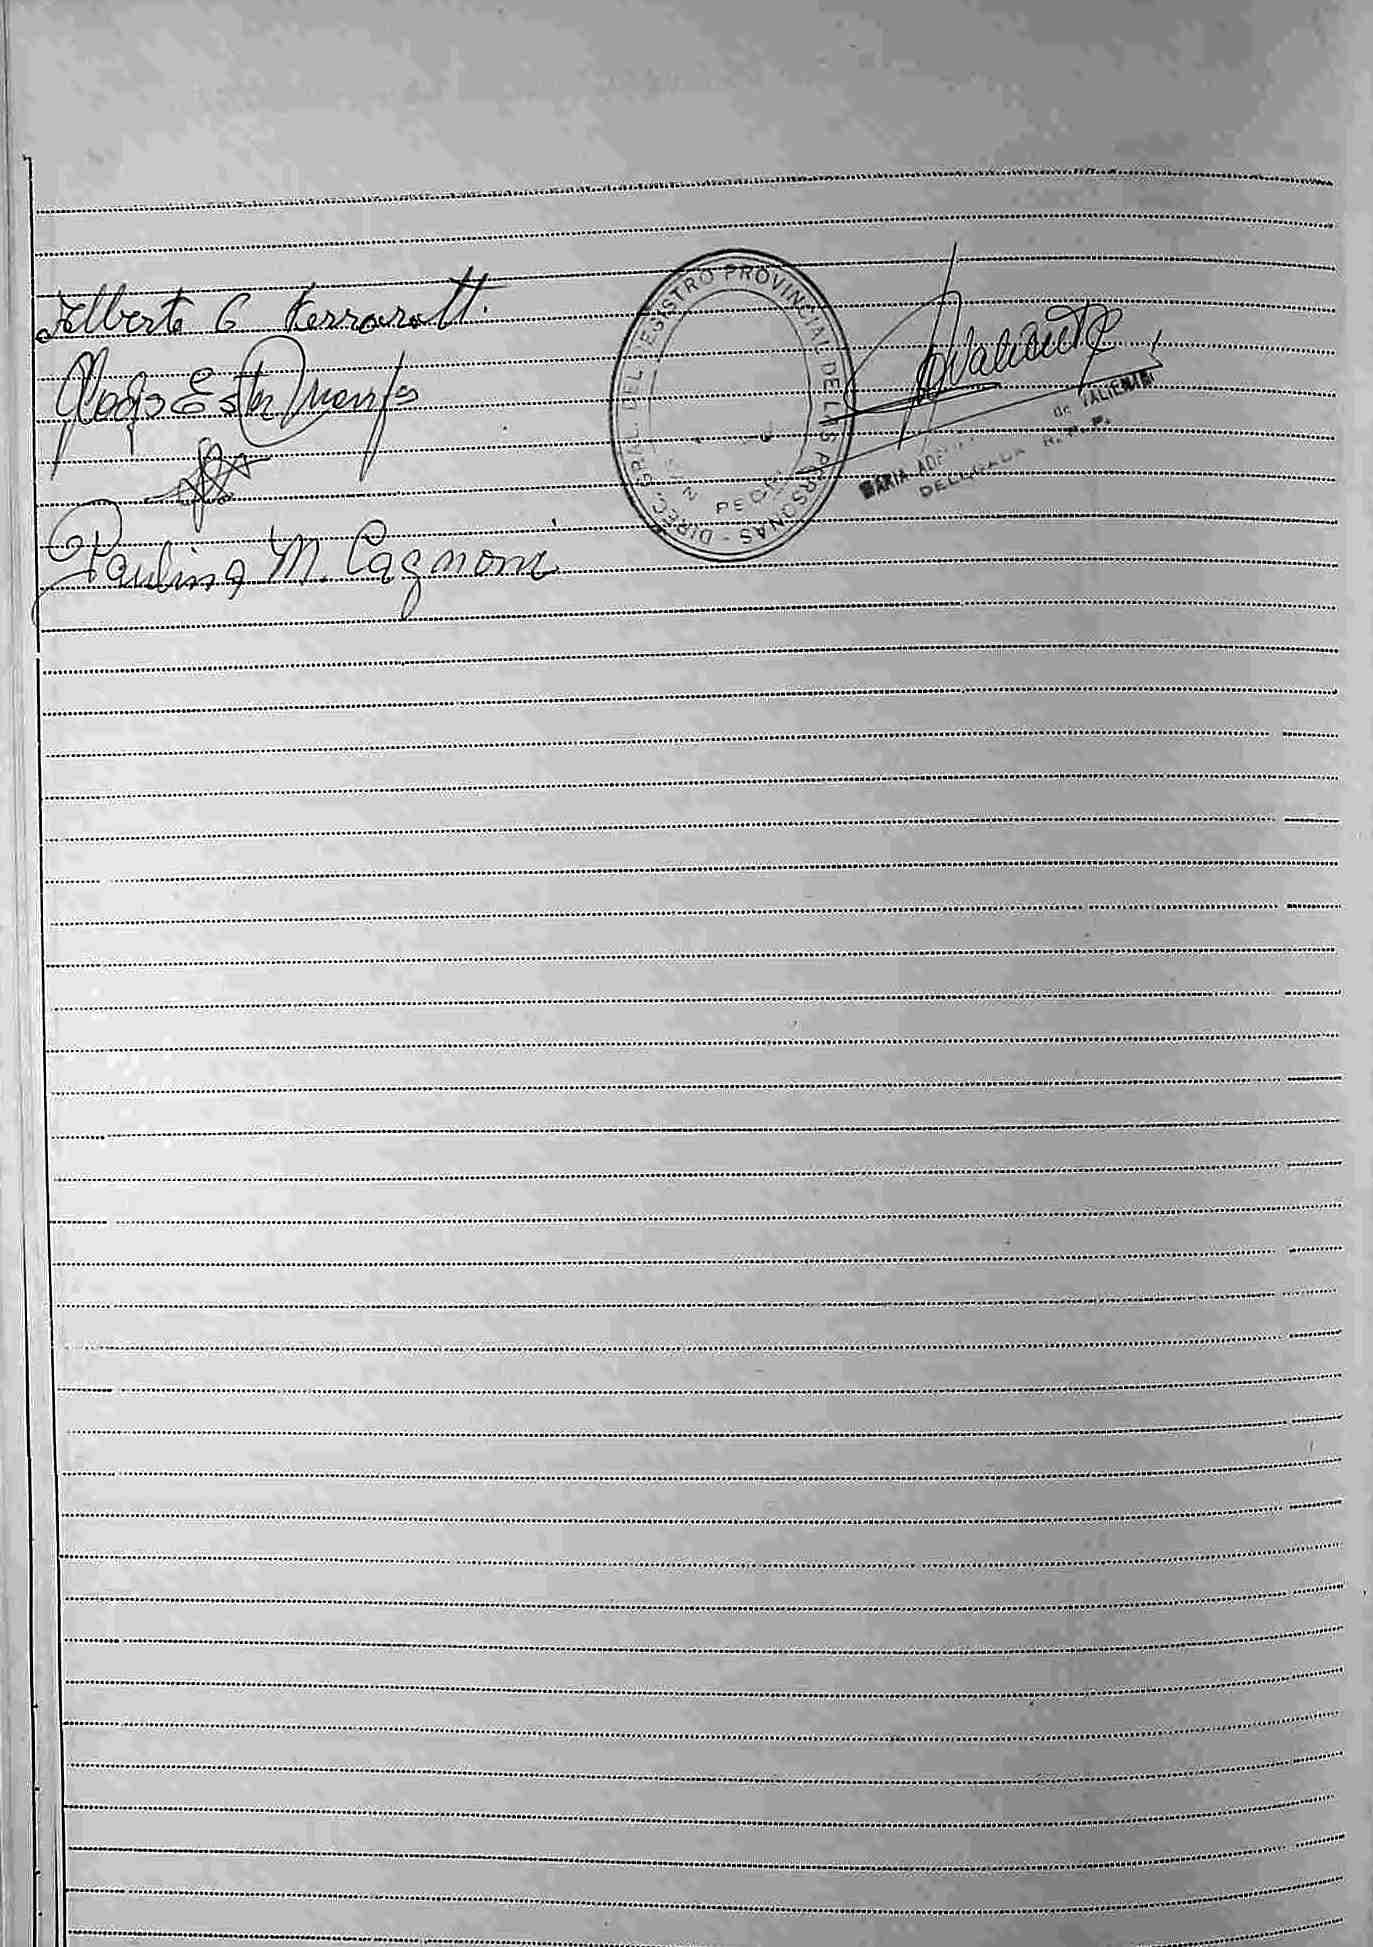 Alberto G Ferrarott.
Gladys Ester
Paulina M. Cagnoni
DIREC. GRAL. DEL REGISTRO PROVINCIAL DE LAS PERSONAS -
AValiente
MARIA de VALIENTE
DELEGADA R. P. P.